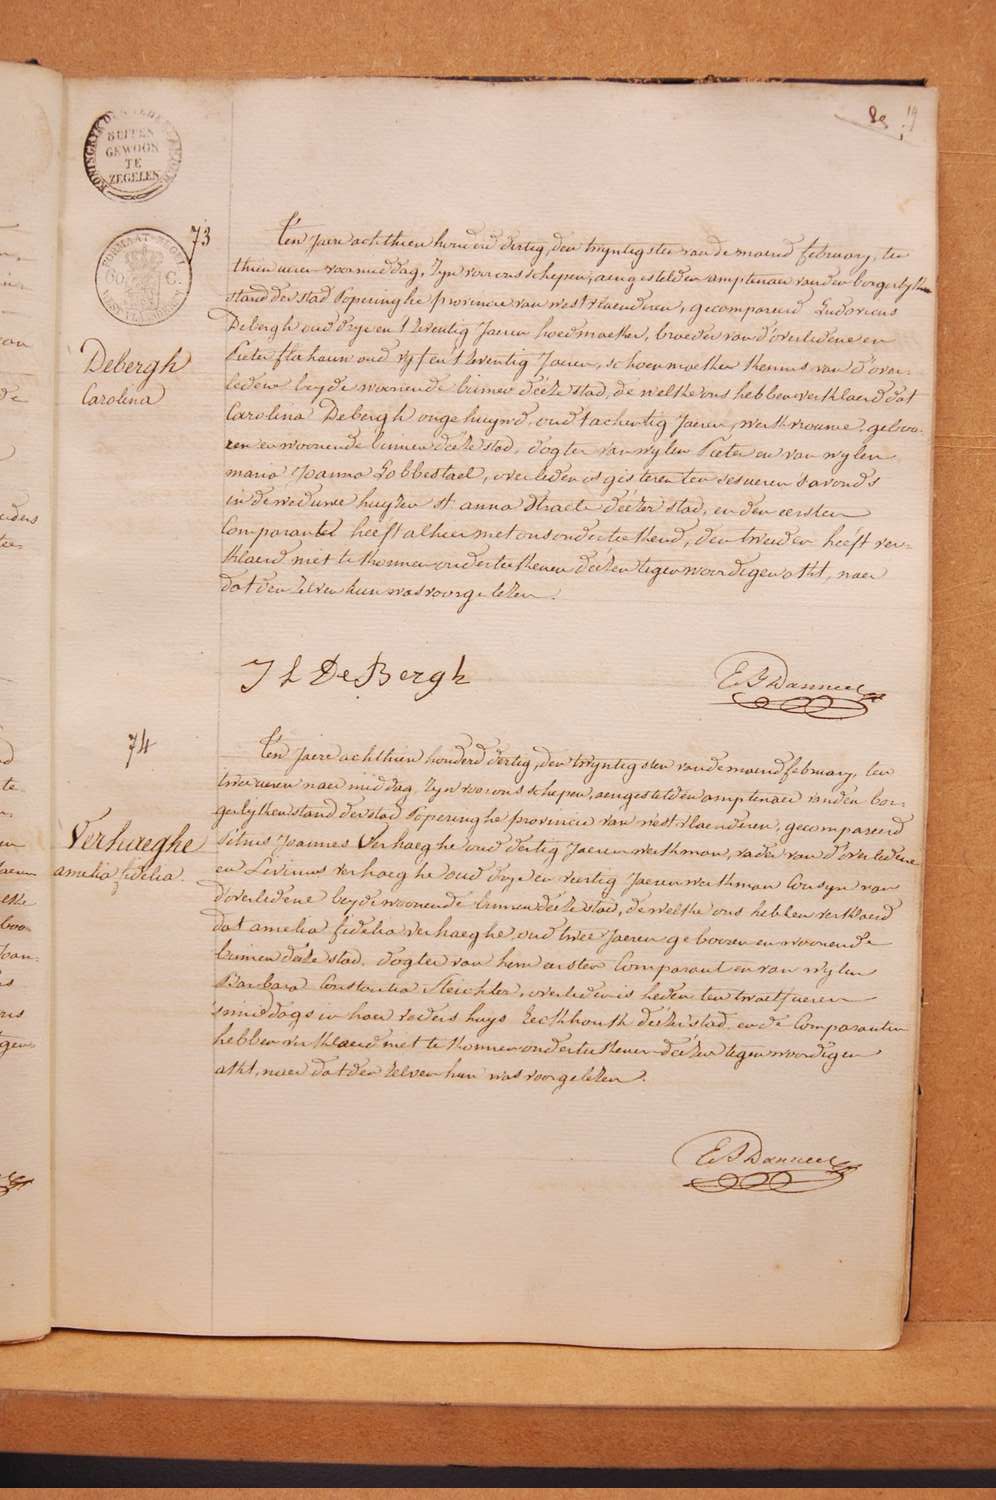 KONINGRYK DER NEDERLANDEN
BUITEN
GEWOON
TE
ZEGELEN
FORMAAT ZEGEL
WEST VLAANDEREN
73
Debergh
Carolina
Ten jaere achthien honderd dertig, den twyntigsten van de maend february, ten
thien ueren voormiddag, zyn voor ons schepen, aengestelden amptenaer van den borgerlyken
stand der stad Poperinghe provincie van westvlaenderen, gecompareerd Ludovicus
Debergh oud dryentzeventig Jaeren hoedmaeker, broeder van d'overledene en
Pieter flahaun oud vyfentzeventig Jaeren, schoenmaeker kennis van d'over-
ledene beyde woonende binnen deéze stad, de welke ons hebben verklaerd dat
Carolina Debergh ongehuywd, oud tachentig Jaeren, werkvrouwe, geboo-
ren en woonende binnen deéze stad, dogter van wylen Pieter en van wylen
maria Joanna Lobbestael, overleden is gisteren ten ses ueren s'avonds
in de weduwe huyzen st. anna straete déézer stad, en den eersten
Comparant heeft alhier met ons onderteekend, den tweeden heéft ver-
klaerd niet te konnen onderteekenen deézen tegenwoordigen akt, naer
dat den zelven hun was voorgelezen.
J L DeBergh
E J Danneel
74
Verhaeghe
amelia fidelia.
Ten jaere achthien honderd dertig, den twyntigsten van de maend february, ten
twee ueren naermiddag, zyn voor ons schepen, aengestelden amptenaer van den bor-
gerlyken stand der stad Poperinghe provincie van westvlaenderen, gecompareerd
Pitus Joannes Verhaeghe oud dertig Jaeren werkman, vader van d'overledene
en Livinus verhaeghe oud dryenveertig Jaeren werkman Cousyn van
d'overledene beyde woonende binnen deéze stad, de welke ons hebben verklaerd
dat amelia fidelia verhaeghe, oud twee Jaeren gebooren en woonende
binnen déeze stad, dogter van hem eersten Comparant en van wylen
Barbara Constantia Sleichter, overleden is heden ten twaelf ueren
s'middags in haer vaders huys Eeckhoutk deézer stad, en de Comparanten
hebben verklaerd niet te konnen onderteekenen deézen tegenwoordigen
akt, naer dat den zelven hun was voorgelezen.
E J Danneel